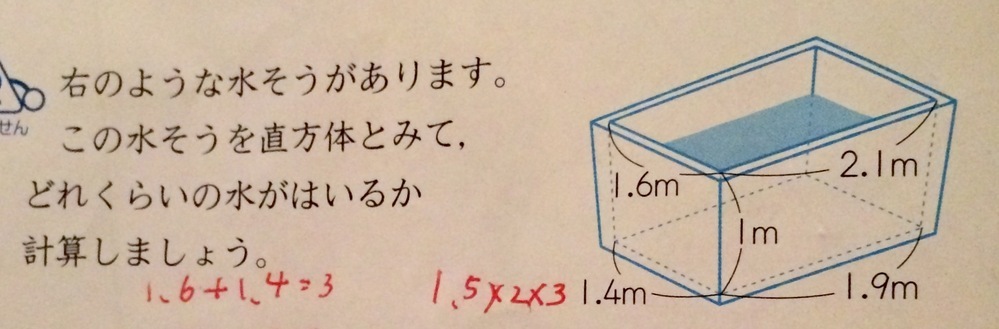 右のような水そうがあります。
せん
この水そうを直方体とみて,
どれくらいの水がはいるか
計算しましょう。
1.6+1.4=3
1.5×2×3
1.6m
2.1m
1m
1.4m
1.9m